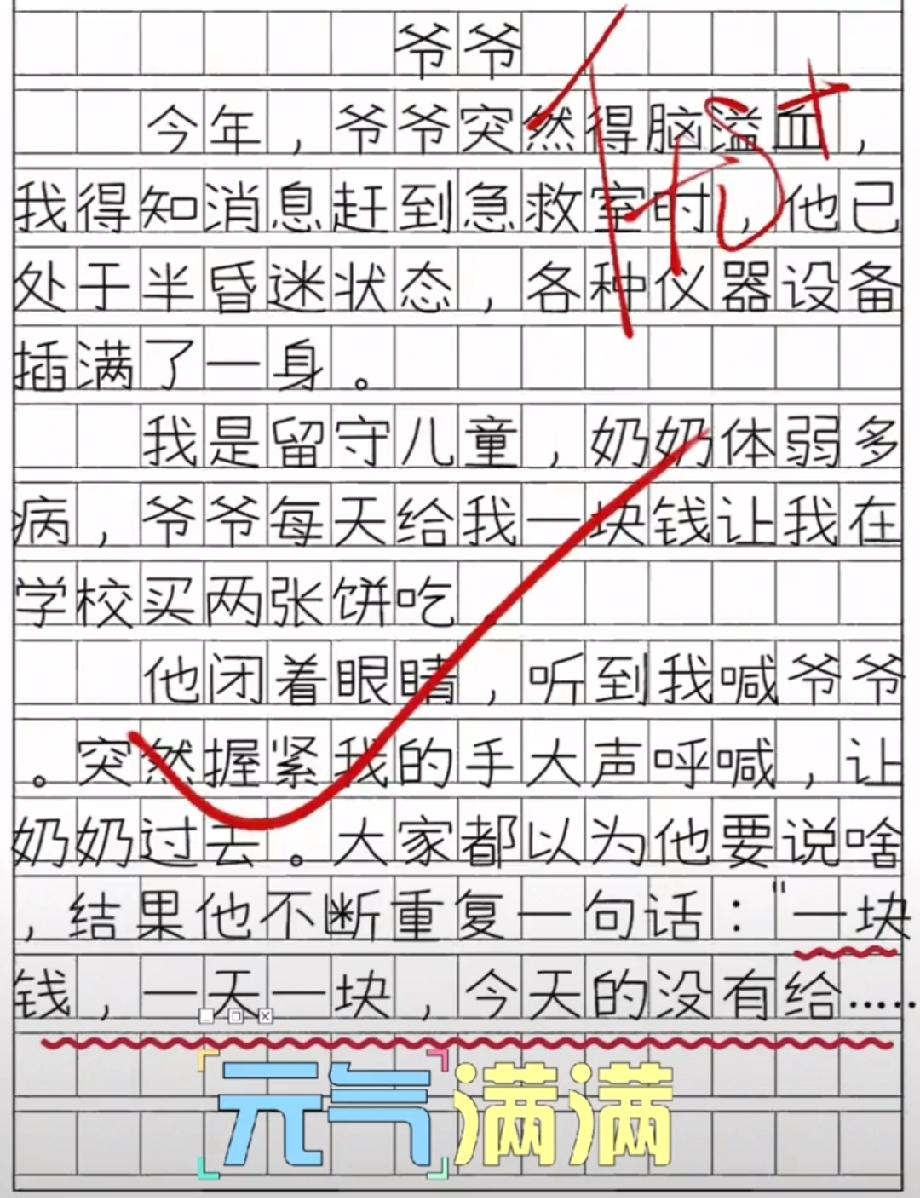 爷爷
今年，爷爷突然得脑溢血，
我得知消息赶到急救室时，他已
处于半昏迷状态，各种仪器设备
插满了一身。
我是留守儿童，奶奶体弱多
病，爷爷每天给我一块钱让我在
学校买两张饼吃。
他闭着眼睛，听到我喊爷爷
。突然握紧我的手大声呼喊，让
奶奶过去。大家都以为他要说啥
，结果他不断重复一句话："一块
钱，一天一块，今天的没有给……
优+
元气满满